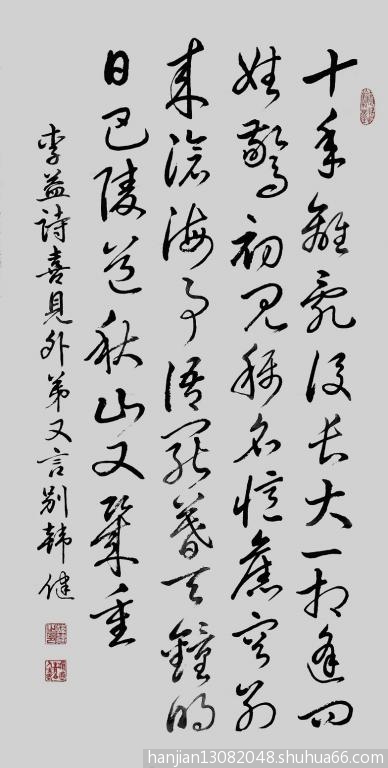 十年離亂後長大一相逢問
姓驚初見稱名憶舊容別
來滄海事語罷暮天鐘明
日巴陵道秋山又幾重
李益詩喜見外弟又言別韓健
hanjian13082048.shuhua66.com